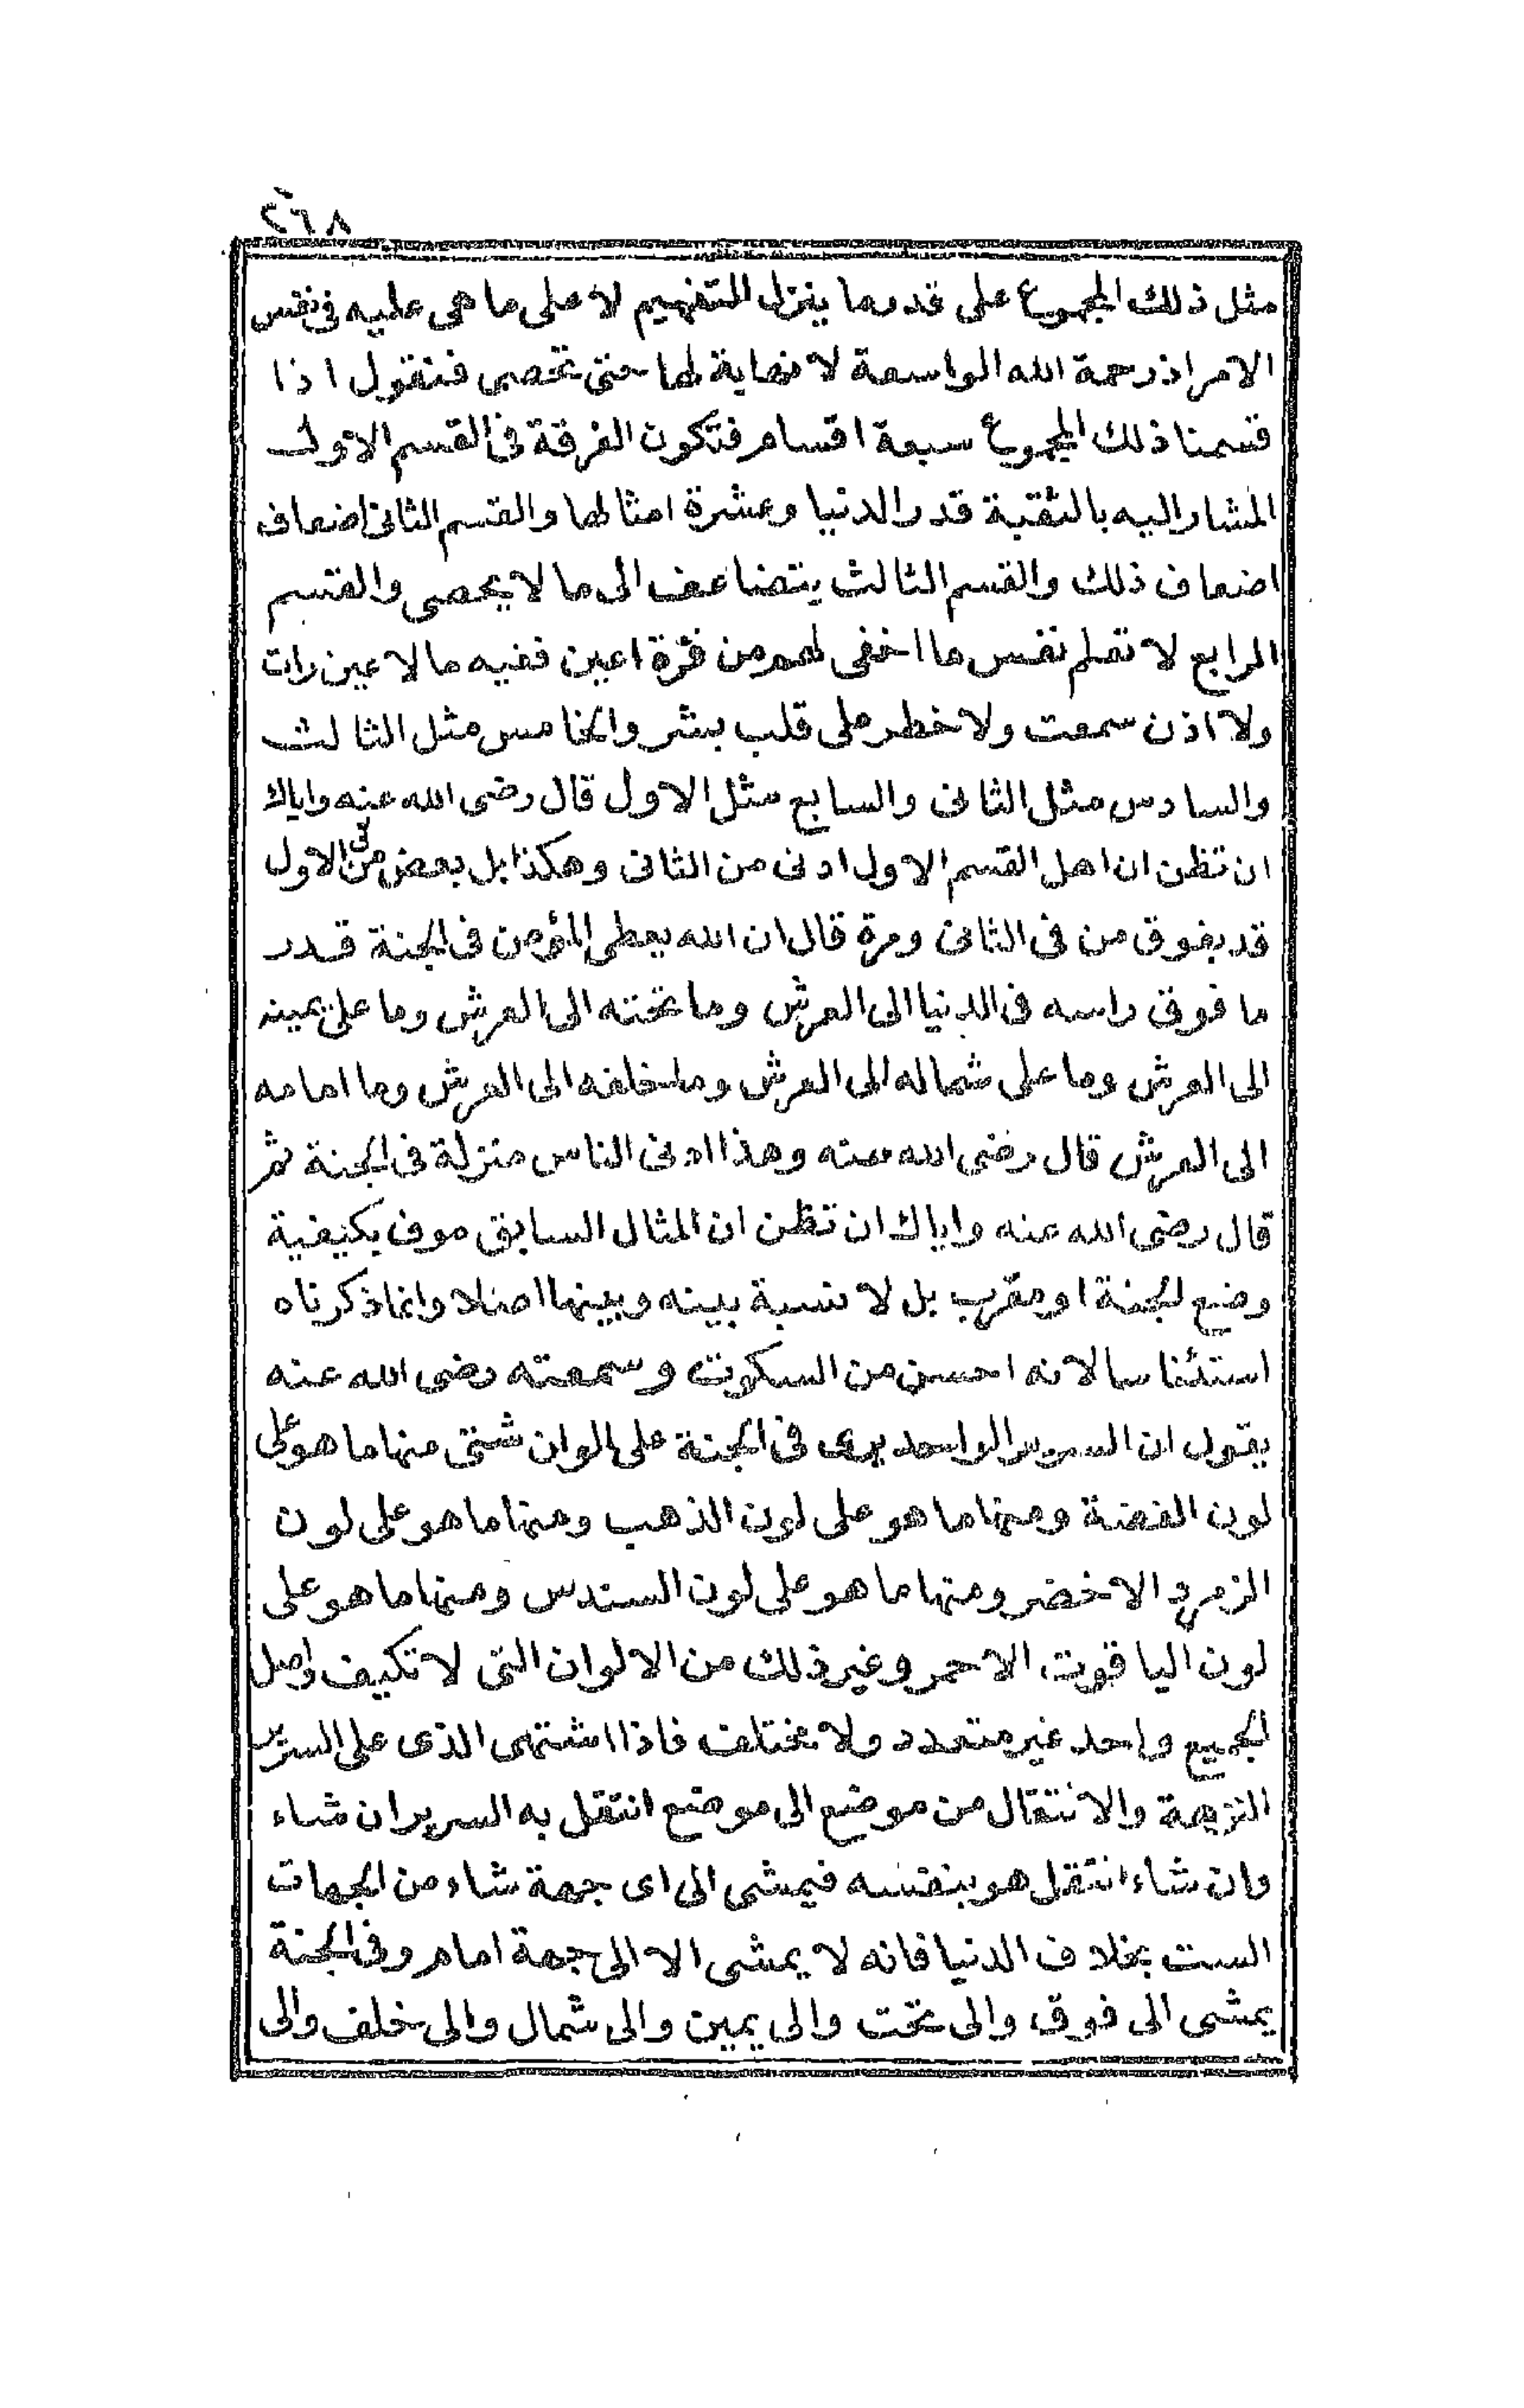 ٢٦٨
مثل ذلك المجموع على قدر ما ينزل للتفهيم لا على ما هى عليه فى نفس
الامر اذ رحمة الله الواسعة لا نهاية لها حتى تحصى فنقول اذا
قسمنا ذلك المجموع سبعة اقسام فتكون الغرفة فى القسم الاول
المشار اليه بالثقبة قدر الدنيا وعشرة امثالها والقسم الثانى اضعاف
اضعاف ذلك والقسم الثالث يتضاعف الى ما لا يحصى والقسم
الرابع لا تعلم نفس ما اخفى لهم من قرة اعين ففيه ما لا عين رات
ولا اذن سمعت ولا خطر على قلب بشر والخامس مثل الثالث
والسادس مثل الثانى والسابع مثل الاول قال رضى الله عنه واياك
ان تظن ان اهل القسم الاول ادنى من الثانى وهكذا بل بعض من فى الاول
قد يفوق من فى الثانى ومرة قال ان الله يعطى المؤمن فى الجنة قدر
ما فوق راسه فى الدنيا الى العرش وما تحته الى العرش وما على يمينه
الى العرش وما على شماله الى العرش وما خلفه الى العرش وما امامه
الى العرش قال رضى الله عنه وهذا ادنى الناس منزلة فى الجنة ثم
قال رضى الله عنه واياك ان تظن ان المثال السابق موف بكيفية
وضع الجنة او مقرب بل لا نسبة بينه وبينها اصلا وانما ذكرناه
استئناسا لانه احسن من السكوت وسمعته رضى الله عنه
يقول ان السرير الواحد يرى فى الجنة على الوان شتى منها ما هو على
لون الفضة ومنها ما هو على لون الذهب ومنها ما هو على لون
الزمرد الاخضر ومنها ما هو على لون السندس ومنها ما هو على
لون الياقوت الاحمر وغير ذلك من الالوان التى لا تكيف واصل
الجميع واحد غير متعدد ولا مختلف فاذا اشتهى الذى على السرير
النزهة والانتقال من موضع الى موضع انتقل به السرير ان شاء
وان شاء انتقل هو بنفسه فيمشى الى اى جهة شاء من الجهات
الست بخلاف الدنيا فانه لا يمشى الا الى جهة امام وفى الجنة
يمشى الى فوق والى تحت والى يمين والى شمال والى خلف والى